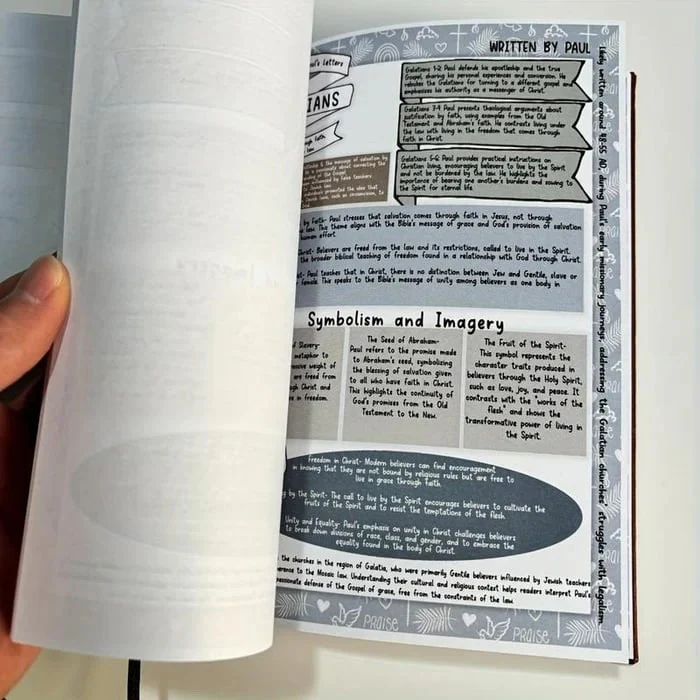 WRITTEN BY PAUL
Paul's Letters
IANS
through faith
law
Galatians 1-2: Paul defends his apostleship and the true
Gospel, sharing his personal experiences and conversion. He
rebukes the Galatians for turning to a different gospel and
emphasizes his authority as a messenger of Christ.
Galatians 3-4 Paul presents theological arguments about
justification by faith, using examples from the Old
Testament and Abraham's faith. He contrasts living under
the law with living in the freedom that comes
through faith in Christ.
Galatians 5-6: Paul provides practical instructions on
Christian living, encouraging believers to live by the Spirit
and not be burdened by the law. He highlights the
importance of bearing one another's burdens and sowing to
the Spirit for eternal life.
the message of salvation by
is passionate about correcting the
of the Gospel
influenced by false teachers
Jewish law
promoted the idea that
Jewish law, such as circumcision, to
by Faith- Paul stresses that salvation comes through faith in Jesus, not through
law. This theme aligns with the Bible's message of grace and God's provision of salvation
human effort
Christ- Believers are freed from the law and its restrictions, called to live in the Spirit.
the broader biblical teaching of freedom found in a relationship with God through Christ.
Paul teaches that in Christ, there is no distinction between Jew and Gentile, slave or
female. This speaks to the Bible's message of unity among believers as one body in
Symbolism and Imagery
of Slavery-
metaphor to
oppressive weight of
are freed from
through Christ and
in freedom.
The Seed of Abraham-
Paul refers to the promise made
to Abraham's seed, symbolizing
the blessing of salvation given
to all who have faith in Christ.
This highlights the continuity of
God's promises from the Old
Testament to the New.
The Fruit of the Spirit-
This symbol represents the
character traits produced in
believers through the Holy Spirit,
such as love, joy, and peace. It
contrasts with the "works of the
flesh" and shows the
transformative power of living in
the Spirit.
Freedom in Christ- Modern believers can find encouragement
in knowing that they are not bound by religious rules but are free to
live in grace through faith
by the Spirit- The call to live by the Spirit encourages believers to cultivate the
fruits of the Spirit and to resist the temptations of the flesh
Unity and Equality- Paul's emphasis on unity in Christ challenges believers
to break down divisions of race, class, and gender, and to embrace the
equality found in the body of Christ.
the churches in the region of Galatia, who were primarily Gentile believers influenced by Jewish teachers
adherence to the Mosaic law. Understanding their cultural and religious context helps readers interpret Paul's
passionate defense of the Gospel of grace, free from the constraints of the law.
likely written around 48-55 AD, during Paul's early missionary journeys, addressing the Galatian churches' struggles with legalism.
PRAISE
PRAISE